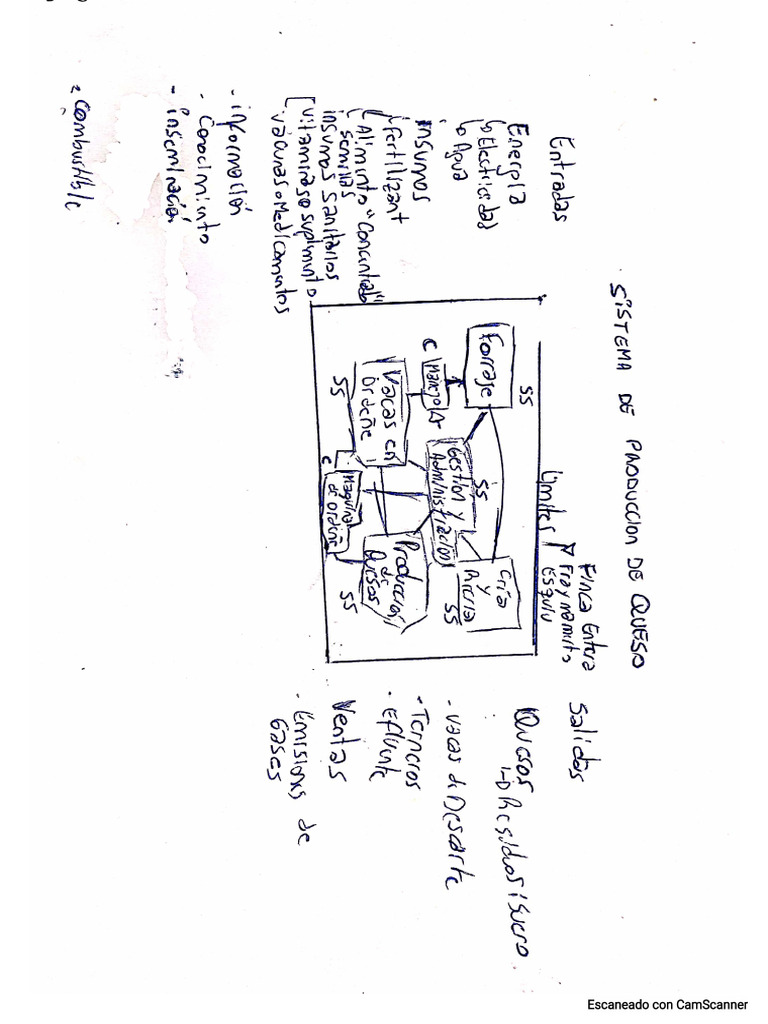 SISTEMA DE PRODUCCION DE QUESO
Limites
Finca Entera
Fray mamerto
Esquiu
Entradas
Energía
Electricidad
Agua
insumos
fertilizant
Alimento "Concentrado"
semillas
insumos Sanitarios
vitaminas o suplimento
vacunas o Medicamentos
- información
- Conocimiento
- inseminación
- Combustible
Forraje
SS
C
Manejo
Vacas en
Ordeñe
SS
SS
Gestion y
Administracion
Cria
y
SS
C
Maquina
de Ordeñe
Produccion
de
Quesos
SS
Salidas
Quesos
Residuos / Suero
- vacas de Descarte
- Terneros
- Efluente
Ventas
- Emisiones de
Gases
Escaneado con CamScanner